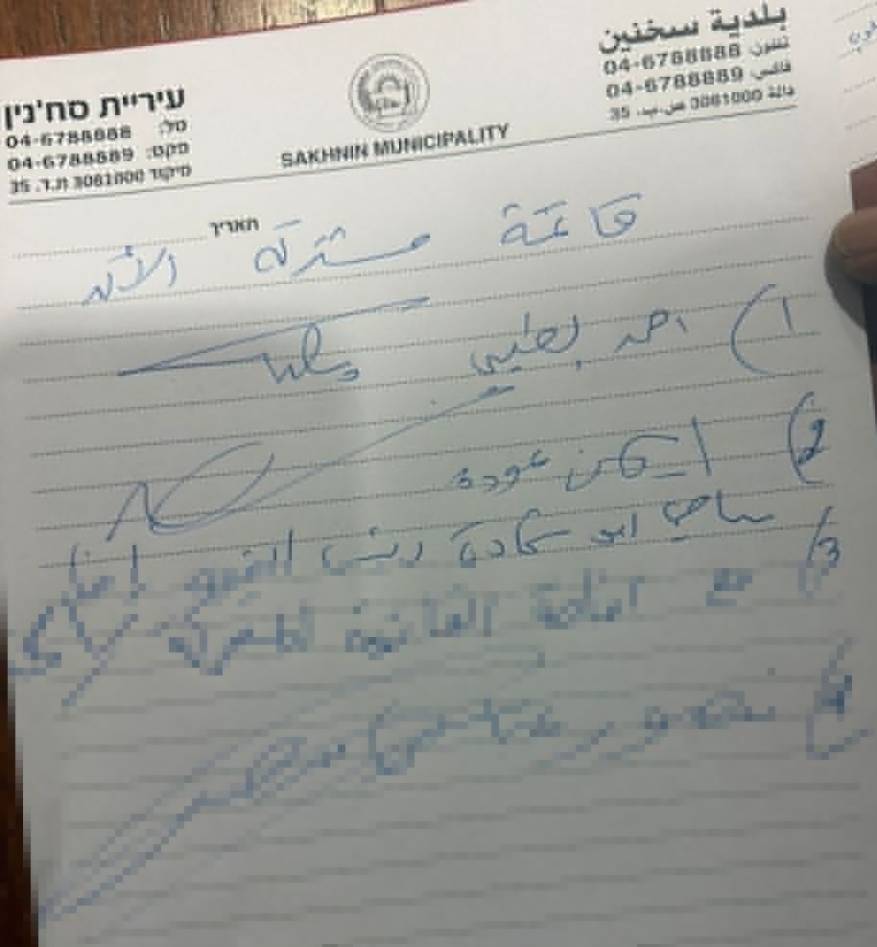 עיריית סח'נין
טל: 04-6788888
פקס: 04-6788889
מיקוד 3081000 ת.ד. 35
SAKHNIN MUNICIPALITY
بلدية سخنين
تلفون 04-6788888
فاكس 04-6788889
35
תאריך
قائمة مشتركة الآن
1) احمد طيبي
2) ايمن عودة
3) سامي ابو شحادة رئيس التجمع
مع
4) منصور عباس